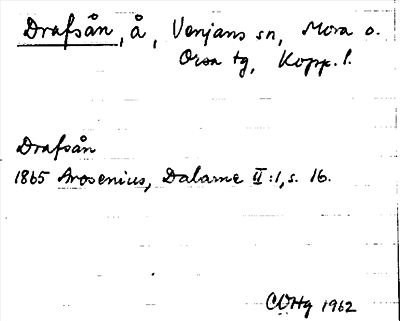 Drafsån, å, Venjans sn, Mora o.
Orsa tg, Kopp. l.
Drafsån
1865 Arosenius, Dalarne II:1, s. 16.
COHg 1962